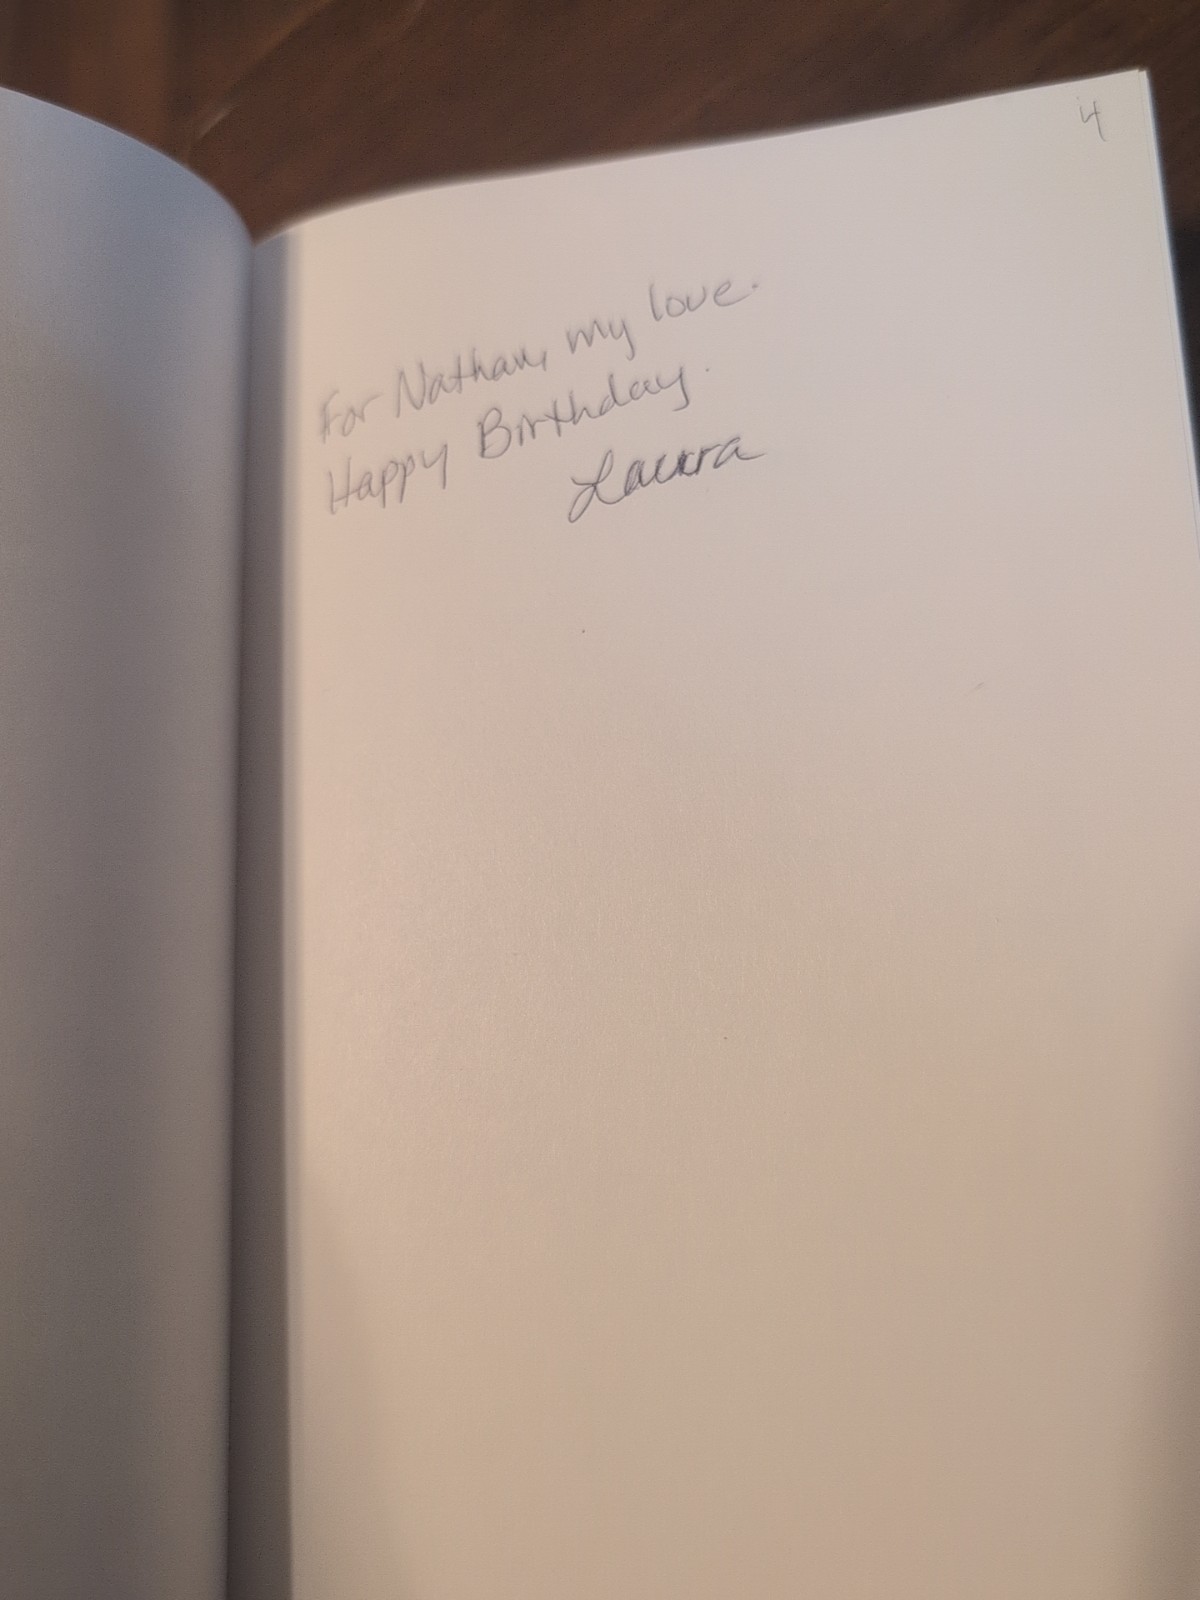 4
For Nathan, my love.
Happy Birthday.
Laura